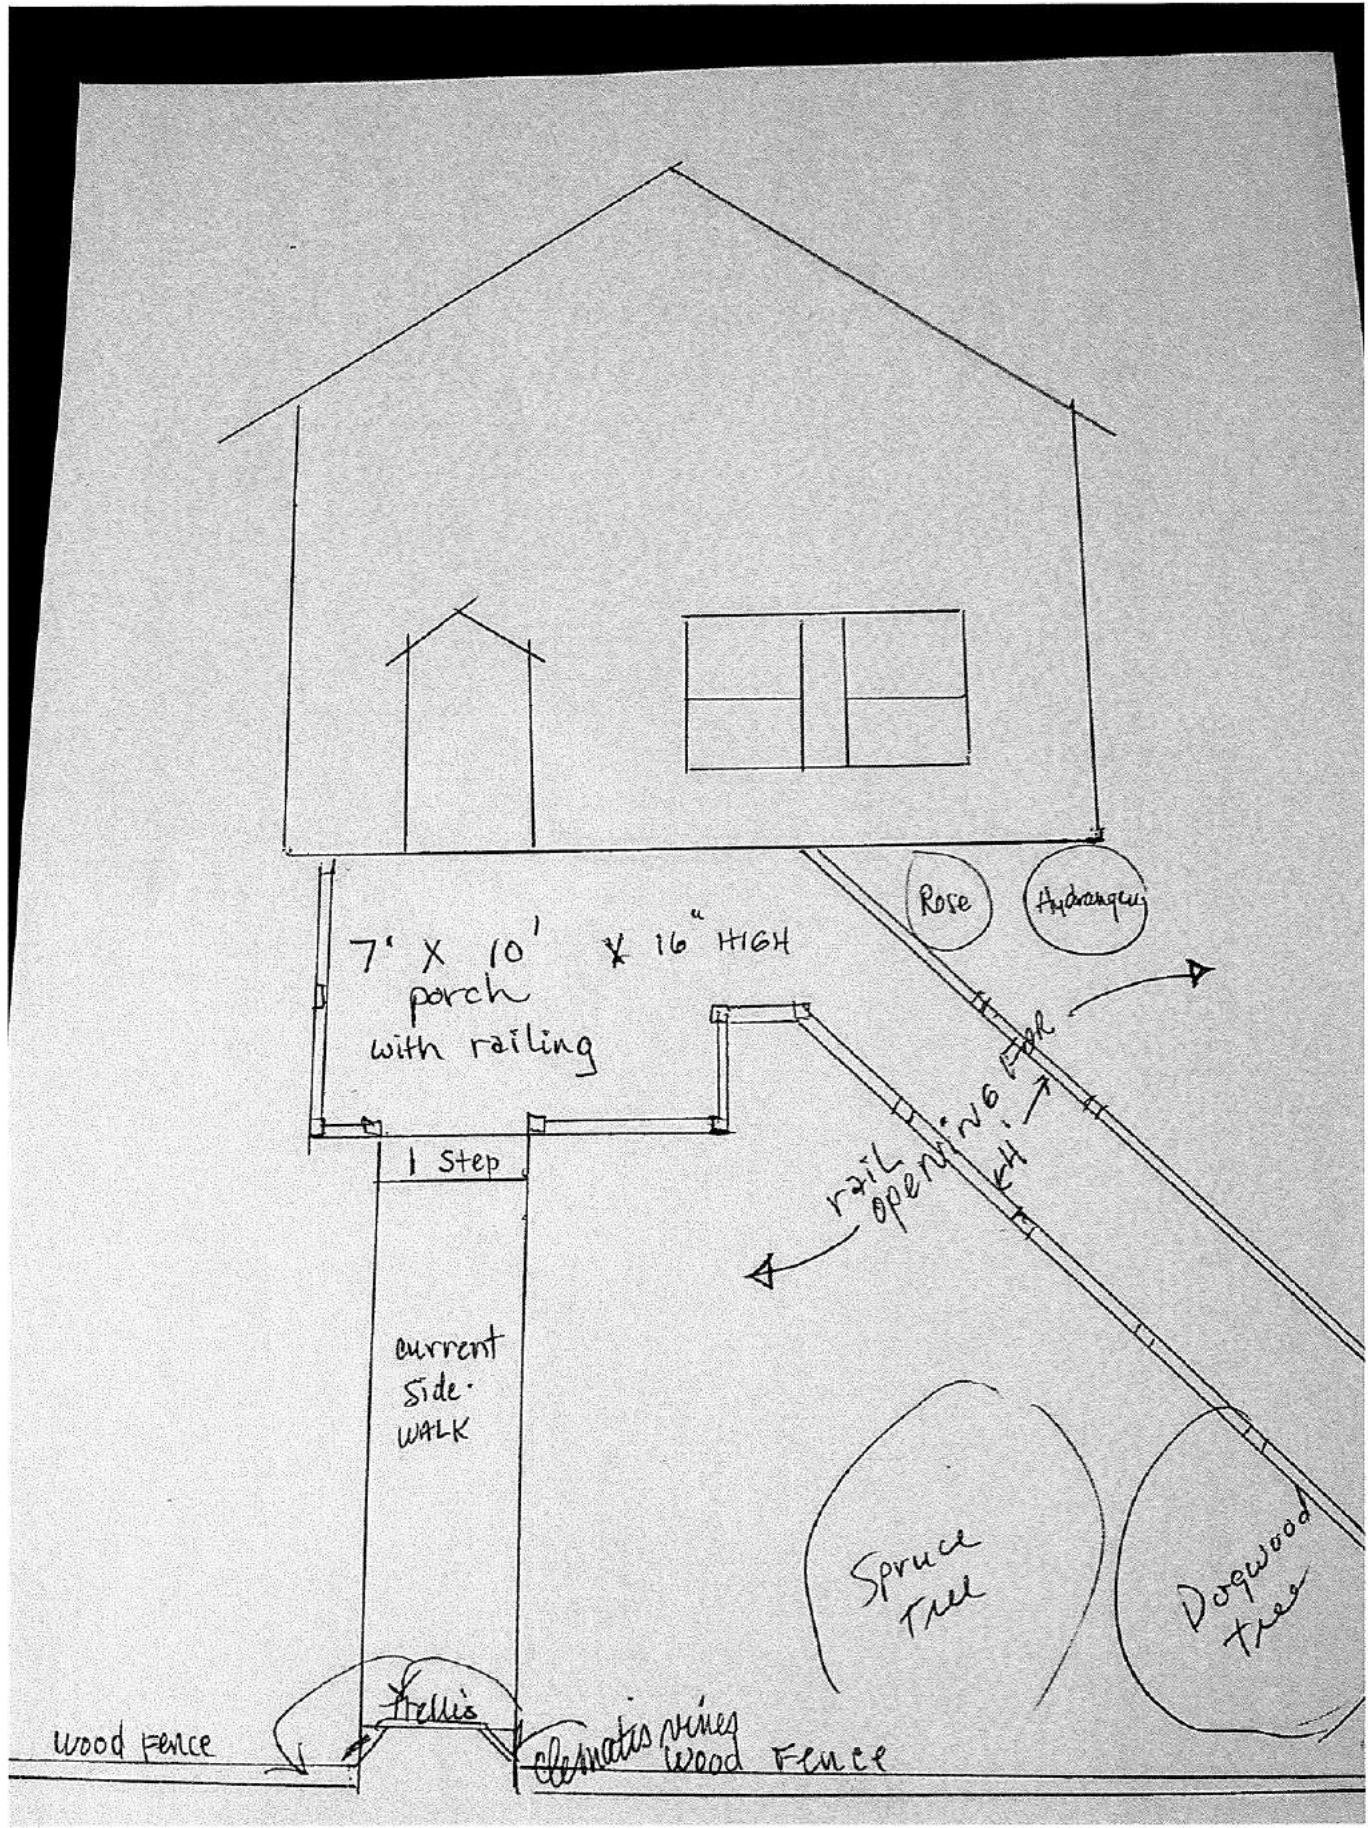 Rose
Hydrangea
7' X 10' X 16" HIGH
porch
with railing
rail
opening FOR
1 Step
current
side-
WALK
Spruce
Tree
Dogwood
tree
trellis
wood Fence
clematis vines
wood Fence